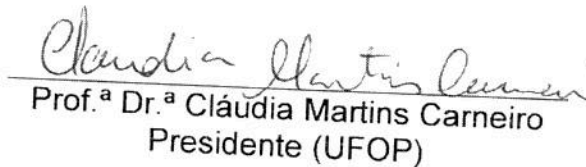 Claudia Martins Carneiro
Prof.ª Dr.ª Cláudia Martins Carneiro
Presidente (UFOP)